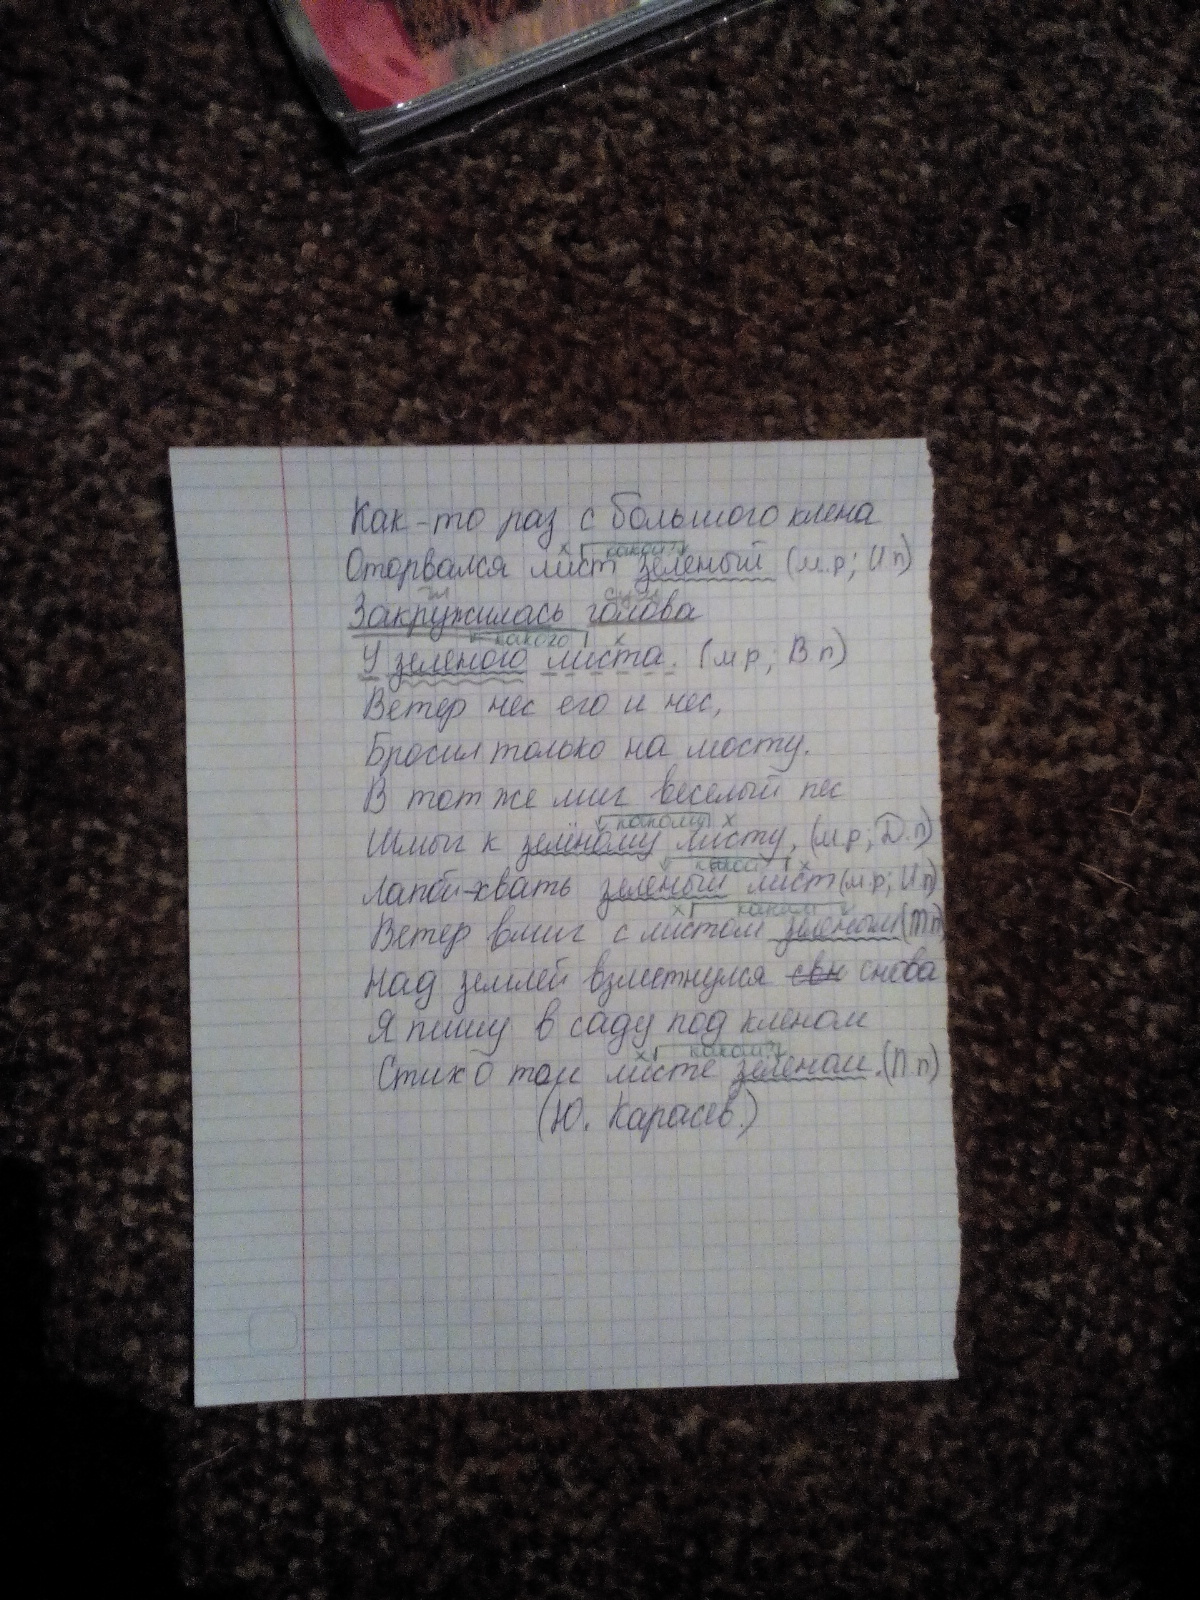 Как-то раз с большого клена
какой?
Оторвался лист зеленый (м.р; И п)
Закружилась голова
какого
У зеленого листа. (м р; В п)
Ветер нес его и нес,
Бросил только на мосту.
В тот же миг веселый пес
какому
Шмыг к зелёному листу, (м р; Д. п)
какой
Лапой-хвать зеленый лист (м.р; И п)
каким
Ветер вмиг с листом зеленым (Т п)
Над землей взметнулся свн снова
Я пишу в саду под кленом
каком?
Стих о том листе зеленом. (П. п)
(Ю. Карасев.)